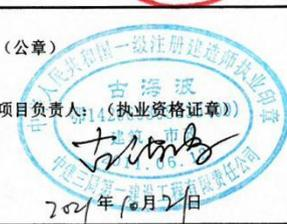 （公章）
中华人民共和国一级注册建造师执业印章
古海波
项目负责人：（执业资格证章）
建筑 市
古海波
中建三局第一建设工程有限责任公司
2021年10月21日